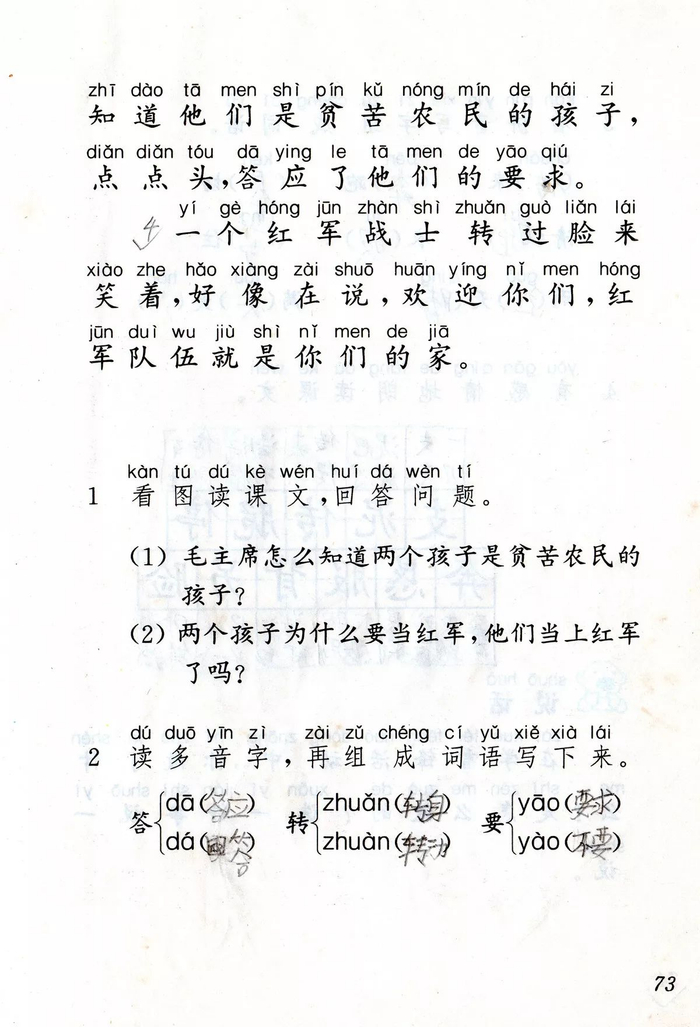 zhī dào tā men shì pín kǔ nóng mín de hái zi
知道他们是贫苦农民的孩子，
diǎn diǎn tóu dā ying le tā men de yāo qiú
点点头，答应了他们的要求。
yí gè hóng jūn zhàn shì zhuǎn guò liǎn lái
4 一个红军战士转过脸来
xiào zhe hǎo xiàng zài shuō huān yíng nǐ men hóng
笑着，好像在说，欢迎你们，红
jūn duì wu jiù shì nǐ men de jiā
军队伍就是你们的家。
kàn tú dú kè wén huí dá wèn tí
1 看图读课文，回答问题。
(1) 毛主席怎么知道两个孩子是贫苦农民的
孩子？
(2) 两个孩子为什么要当红军，他们当上红军
了吗？
dú duō yīn zì zài zǔ chéng cí yǔ xiě xià lái
2 读多音字，再组成词语写下来。
dā(答应) zhuǎn(转身) yāo(要求)
答 转 要
dá(回答) zhuàn(转动) yào(不要)
73